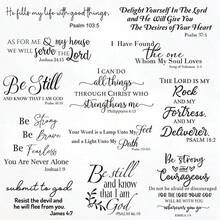 He fills my life with good things.
Psalm 103:5
Delight Yourself in The Lord
and He will Give You
The Desires of Your Heart
Psalm 37:4
AS FOR ME & my house
WE WILL serve THE LORD
Joshua 24:15
I Have Found
The one
Whom My Soul Loves
Song of Solomon 3:4
Be Still
AND KNOW THAT I AM GOD
Psalm 46:10
I CAN DO
all things
THROUGH CHRIST WHO
strengthens me
Philippians 4:13
THE LORD IS MY
ROCK
AND MY
FORTRESS,
AND MY
DELIVERER.
Psalm 18:2
Be Strong
Be Brave
Be Fearless
You Are Never Alone
Joshua 1:9
Your Word is a Lamp Unto My Feet
and a Light Unto My Path.
Psalm 119:105
submit to god
Resist the devil and he
will flee from you.
James 4:7
Be still
and know
that I am
God
PSALM 46:10
Be strong
and
Courageous
Do not be afraid or discouraged
WILL BE WITH YOU
wherever you go